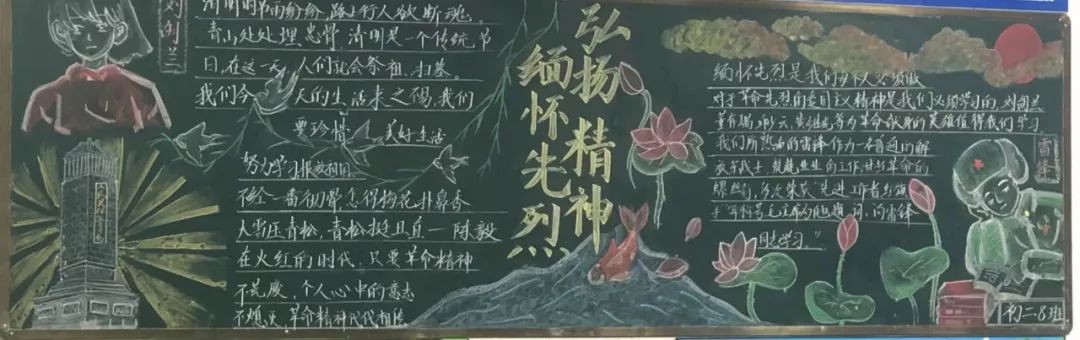 刘胡兰
清明时节雨纷纷,路上行人欲断魂。
青山处处埋忠骨 清明是一个传统节
日,在这一天 人们就会祭祖、扫墓。
我们今 天的生活来之不易,我们
要珍惜 美好生活
努力学习报效祖国
不经一番彻骨怎得梅花扑鼻香
大雪压青松,青松挺且直 — 陈毅
在火红的时代 只要革命精神
不荒废,个人心中的意志
不熄灭 革命精神代代相传
弘扬精神
缅怀先烈
缅怀先烈是我们每个人必须做
对于革命先烈的爱国主义精神是我们必须学习的,刘胡兰
董存瑞 等为革命献身的英雄值得我们学习
我们所熟知的雷锋作为一个普通的解
放军战士,兢兢业业的工作,甘当革命的
螺丝钉,多次荣获先进工作者
毛主席为他题词"向雷锋
同志学习。"
雷锋
初二.8班